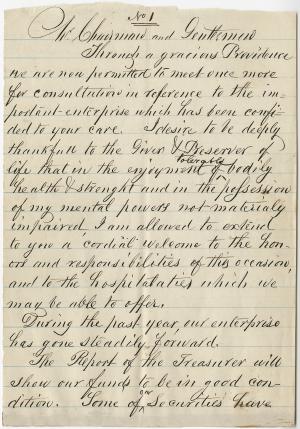 No 1
Mr. Chairman and Gentlemen
Through a gracious Providence
we are now permitted to meet once more
for consultation in reference to the im-
portant enterprise which has been confi-
ded to your care. I desire to be deeply
thankfull to the Giver & Preserver of
tolerable
life that in the enjoyment of bodily
health & strenght and in the possession
of my mental powers not materialy
impaired, I am allowed to extend
to you a cordial welcome to the hon-
ors and responsibilities of this occasion,
and to the hospitataties which we
may be able to offer.
During the past year, our enterprise
has gone steadily forward.
The Report of the Treasurer will
show our funds to be in good con-
our
dition. Some of Securities have